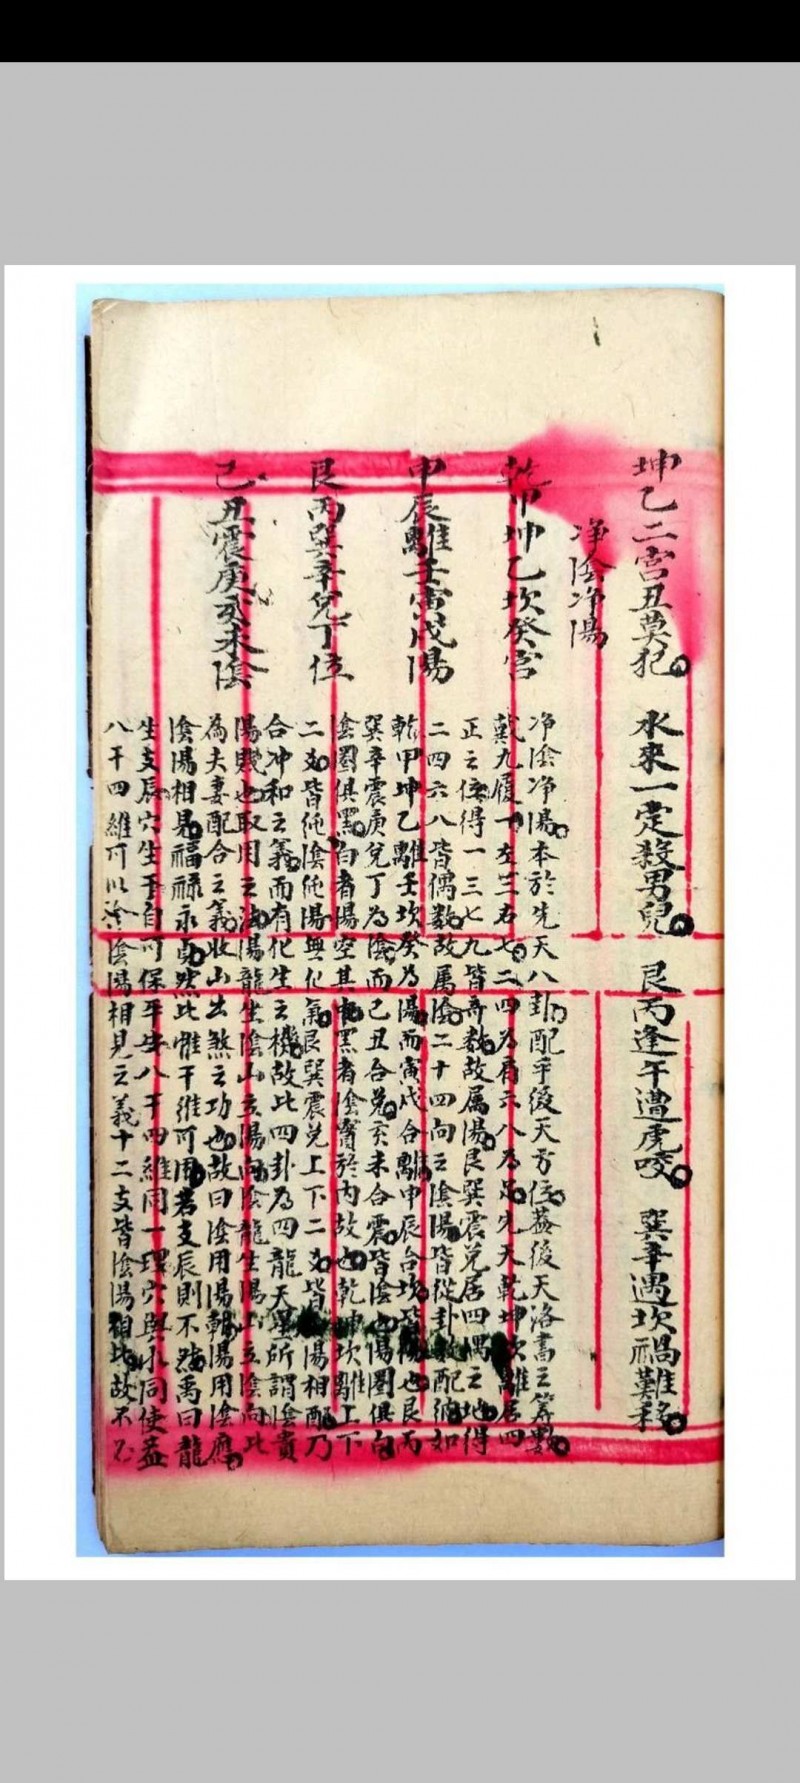 坤乙二宮丑莫犯 水來一定殺男兒 艮丙逢午遭虎咬 巽辛遇坎禍難移
净陰净陽
乾甲坤乙坎癸宮
申辰離壬寅戌陽
艮丙巽辛兌丁位
己丑震庚亥未陰
净陰净陽本於先天八卦配乎後天方位蓋後天洛書之筭數
戴九履一左三右七二四為肩六八為足先天乾坤坎離居四
正之位得一三七九皆奇數故属陽艮巽震兌居四隅之地得
二四六八皆偶數故属陰二十四向之陰陽皆從卦配納如
乾甲坤乙離壬坎癸為陽而寅戌合離申辰合坎皆陽也艮丙
巽辛震庚兌丁為陰而己丑合兌亥未合震皆陰也陽圈俱白
陰圈俱黑白者陽空其中黑者陰實於內故也乾坤坎離上下
二爻皆純陰純陽無化氣艮巽震兌上下二爻皆陽相配乃
合冲和之義而有化生之機故此四卦為四龍天星所謂陰貴
陽賤也取用之法陽龍坐陰山立陽向陰龍坐陽山立陰向此
為夫妻配合之義收山出煞之功也故曰陰用陽朝陽用陰應
陰陽相見福祿永貞然此惟干維可用若支辰則不然禹曰龍
生支辰穴生干自可保平安八干四維同一理穴與水同使益
八干四維可以陰陽相見之義十二支皆陰陽相比故不